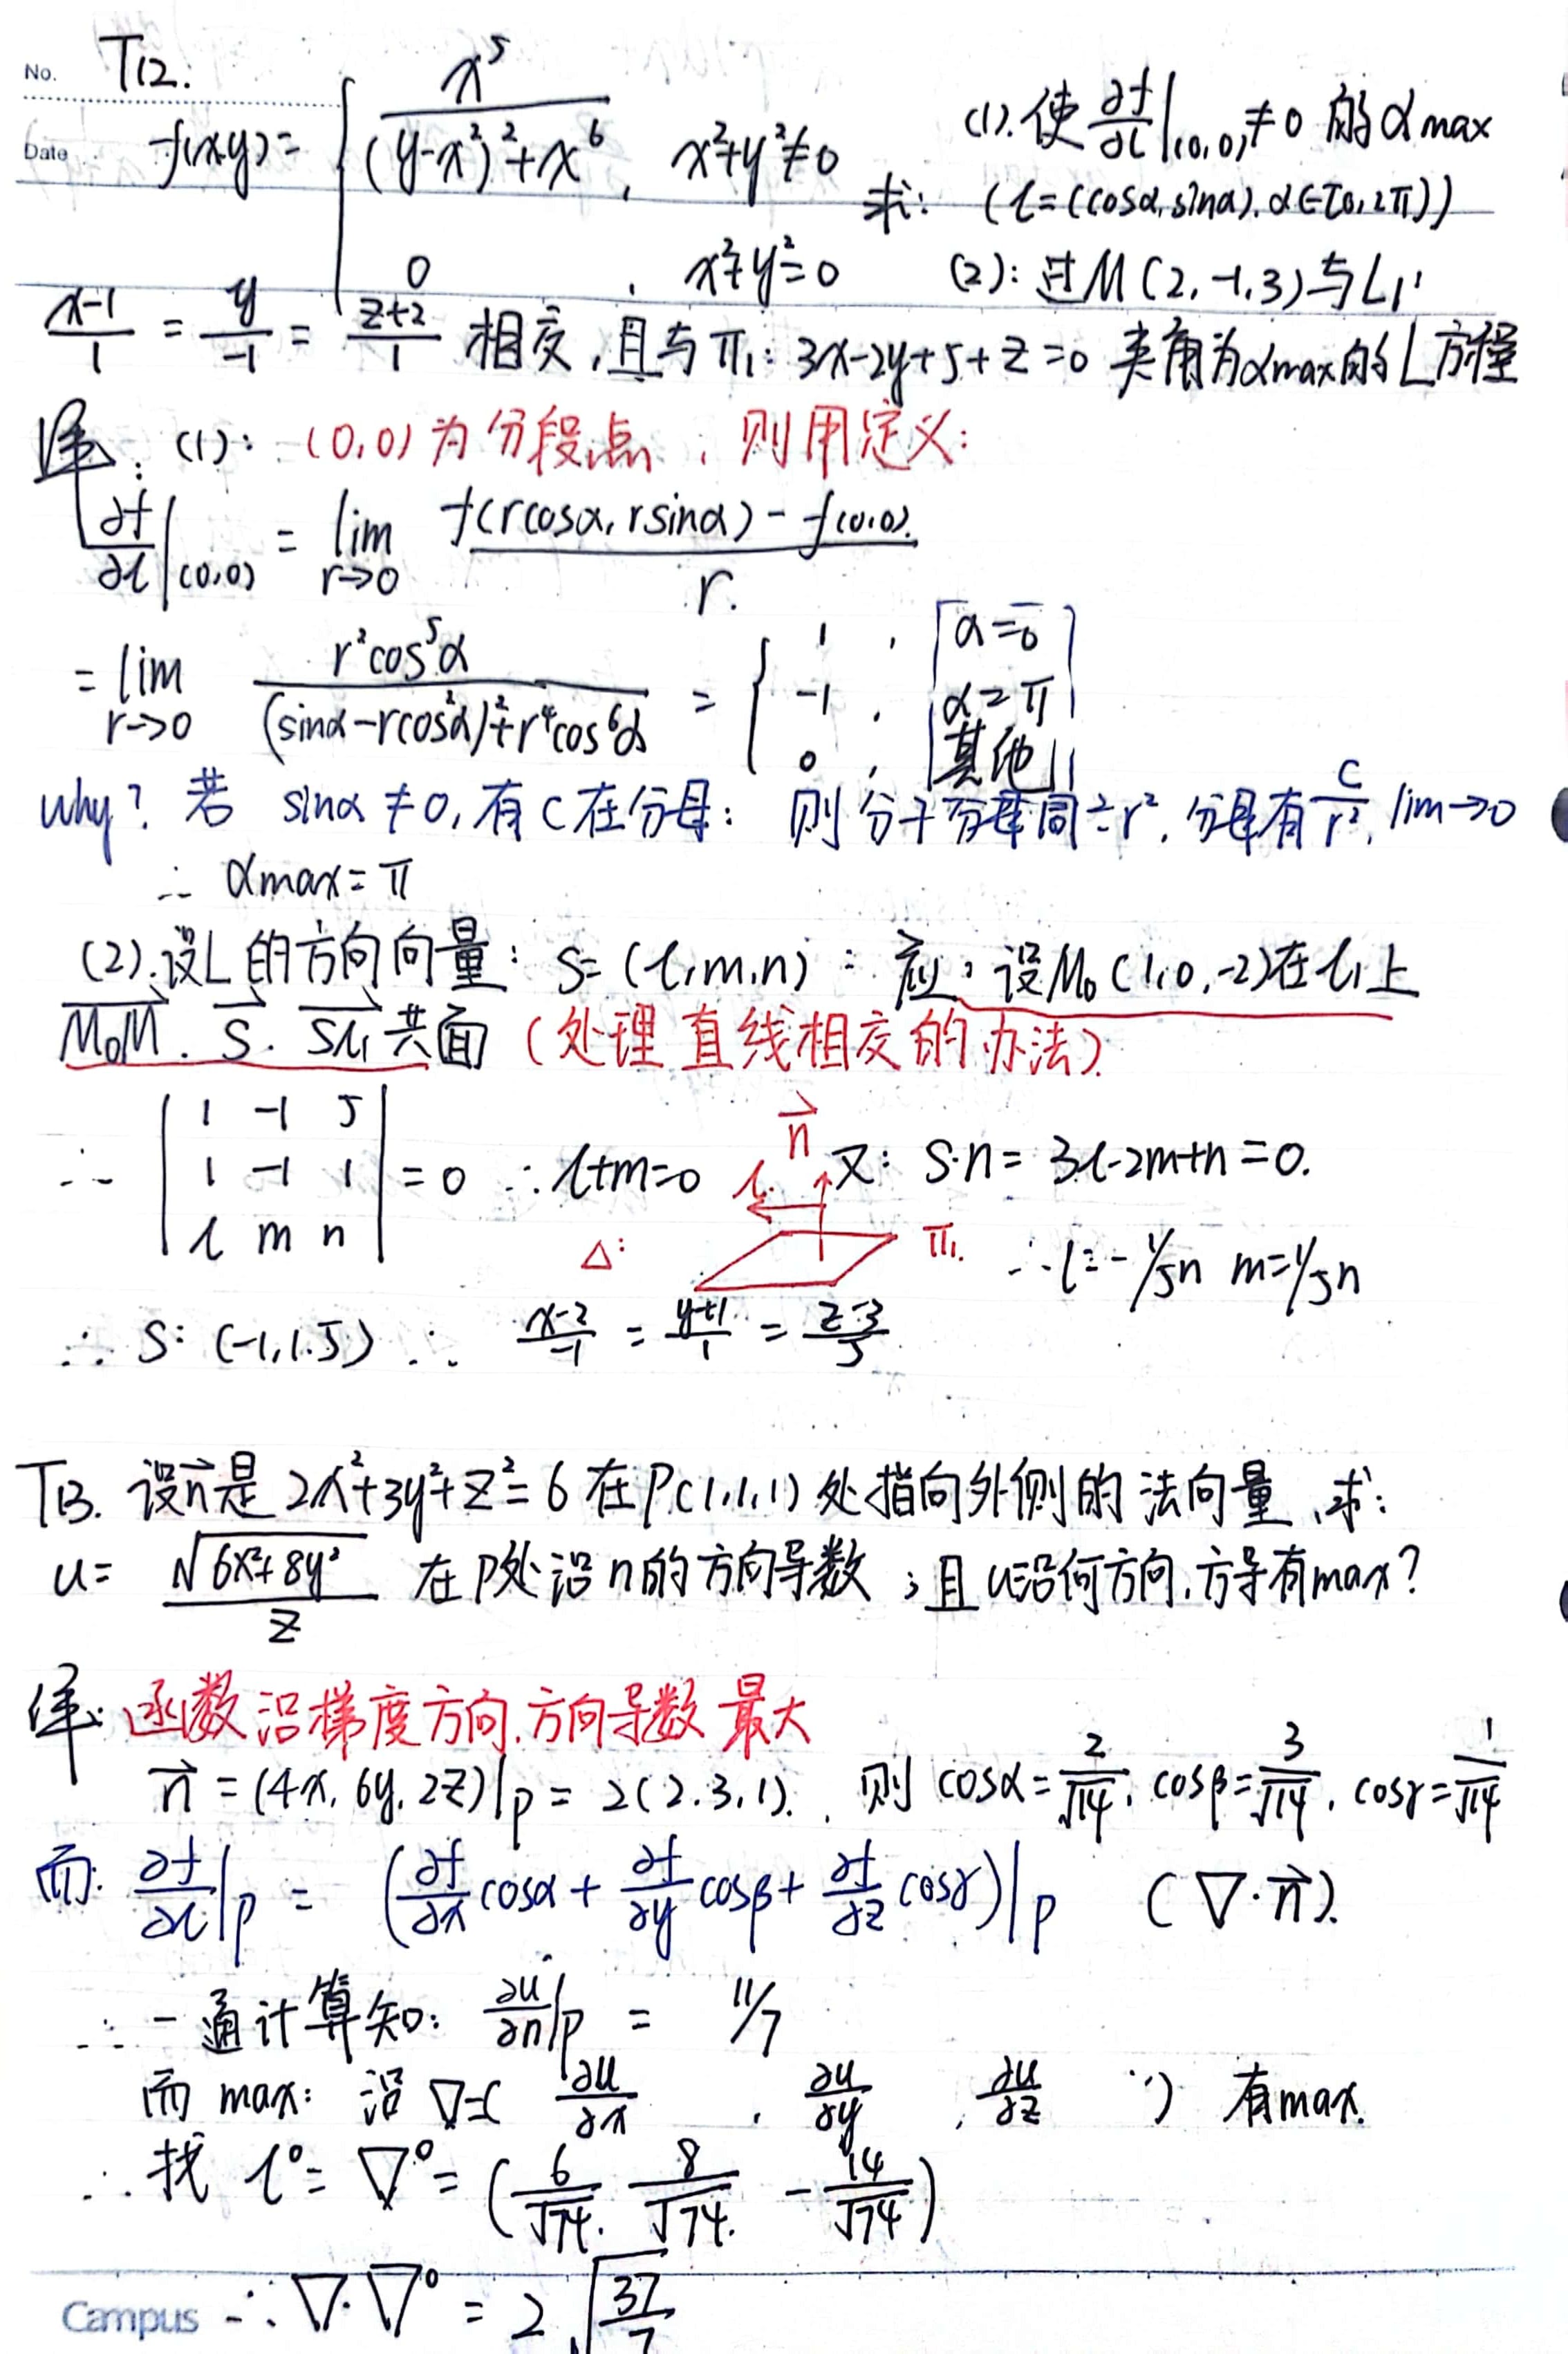 No. T12.
Date f(x,y)= { x⁵/((y-x²)²+x⁶) , x²+y²≠0
0 , x²+y²=0
求: (1). 使 ∂f/∂l|(0,0) ≠0 的 αmax
(l=(cosα, sinα), α∈[0,2π))
(2): 过M(2,-1,3)与L1:
(x-1)/1 = y/-1 = (z+2)/1 相交,且与π1: 3x-2y+5+z=0 夹角为αmax的L方程
解: (1): (0,0)为分段点,则用定义:
∂f/∂l|(0,0) = lim r→0 (f(rcosα, rsinα) - f(0,0))/r.
= lim r→0 r²cos⁵α/((sinα-rcos²α)²+r⁴cos⁶α) = { 1 , α=0
-1 , α=π
0 , 其他
why? 若 sinα≠0, 有C在分母: 则分子分母同÷r², 分母有 C/r², lim→0
∴ αmax=π
(2).设L的方向向量: S=(l,m,n) : 设M₀(1,0,-2)在l₁上
M₀M. S. Sl₁ 共面 (处理直线相交的办法)
∴ | 1 -1 5 |
| 1 -1 1 | =0 ∴ l+m=0 n 又: S·n= 3l-2m+n=0.
| l m n |
l. Δ: π1. ∴ l=-1/5n m=1/5n
∴ S: (-1,1.5) ∴ (x-2)/-1 = (y+1)/1 = (z-3)/5
T13. 设n是 2x²+3y²+z²=6 在P(1,1,1)处指向外侧的法向量,求:
u= √(6x²+8y²)/z 在P处沿n的方向导数;且u沿何方向,方导有max?
解: 函数沿梯度方向,方向导数最大
n =(4x, 6y, 2z)|p = 2(2.3,1). 则 cosα=2/√14, cosβ=3/√14, cosγ=1/√14
而: ∂f/∂l|p = (∂f/∂x cosα + ∂f/∂y cosβ + ∂f/∂z cosγ)|p (∇·n).
∴ 一通计算知: ∂u/∂n|p = 11/7
而 max: 沿 ∇=( ∂u/∂x , ∂u/∂y , ∂u/∂z ) 有max.
∴ 找 l⁰= ∇⁰= (6/√74. 8/√74. -14/√74)
Campus ∴ ∇·∇⁰ = 2√(37/7)